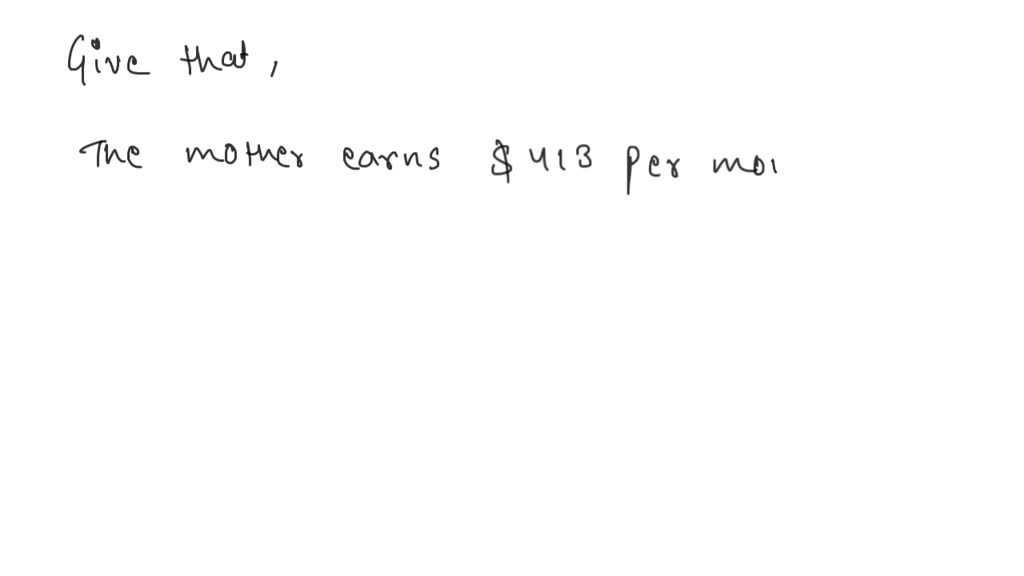 Give that,
The mother earns $413 per mo